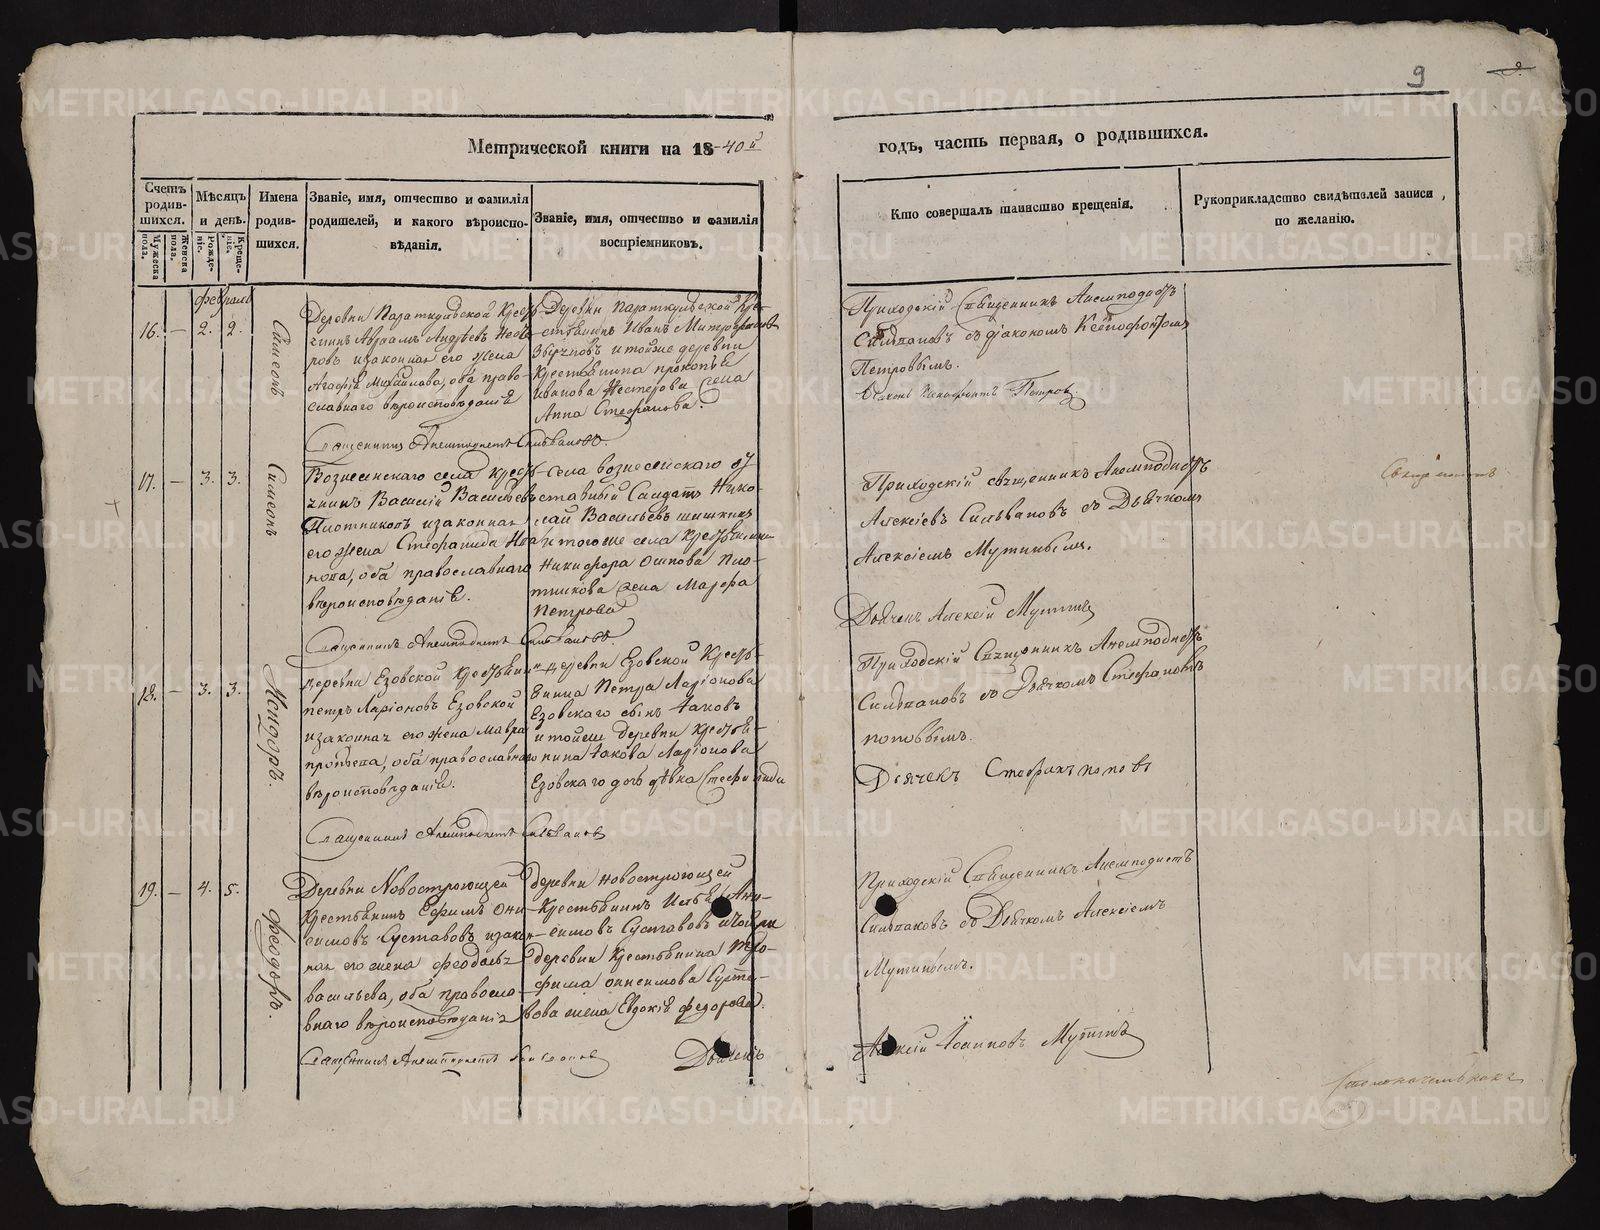 9
Метрической книги на 18-40й
годъ, часть первая, о родившихся.
Счетъ родив- шихся.
Мужеска пола.
Женска пола.
Мѣсяцъ и день.
Рожде- нія.
Креще- нія.
Имена родив- шихся.
Званіе, имя, отчество и фамилія
родителей, и какого вѣроиспо-
вѣданія.
Званіе, имя, отчество и фамилія
воспріемниковъ.
Кто совершалъ таинство крещенія.
Рукоприкладство свидѣтелей записи
по желанію.
февраля
16. — 2. 2.
Симеонъ
Деревни Параткульской Кресть-
янинъ Авраамъ Андреевъ Несте-
ровъ изаконная его жена
Агафія Михайлова, оба право-
славнаго вѣроисповѣданія
Деревни Параткульской Кре-
стьянинъ Иванъ Митрофановъ
итойже деревни
Крестьянина прокопья
Иванова Нестерова жена
Анна Стефанова.
Приходскій Священникъ Анемподистъ
Сильвановъ съ діакономъ Ксенофонтомъ
Петровымъ.
Діаконъ Ксенофонтъ Петровъ
Священникъ Анемподистъ Сильвановъ.
17. — 3. 3.
Симеонъ
Вознесенскаго села Кресть-
янинъ Василій Васильевъ
Плотниковъ изаконная
его жена Стефанида Ива-
нова, оба православнаго
вѣроисповѣданія.
села вознесенскаго от-
ставный Салдатъ Нико-
лай Васильевъ шишкинъ
и тогоже села Крестьянина
Никифора Осипова Пло-
тникова жена Марфа
Петрова
Приходскій священникъ Анемподистъ
Алексіевъ Сильвановъ съ Дьячкомъ
Алексіемъ Мутинымъ.
Дьячекъ Алексій Мутинъ
Священникъ Анемподистъ Сильвановъ
18. — 3. 3.
Исидоръ.
деревни Езовской Крестьянинъ
петръ Ларіоновъ Езовской
изаконная его жена мавра
оба православнаго
вѣроисповѣданія.
деревни Езовской Кресть-
янина Петра Ларіонова
Езовскаго сынъ Іаковъ
и тойже деревни крестья-
нина Іакова Ларіонова
Езовскаго дочь дѣвка Стефанида
Приходскій Священникъ Анемподистъ
Сильвановъ съ Дьячкомъ Стефаномъ
поповымъ.
Дьячекъ Стефанъ поповъ
Священникъ Анемподистъ Сильвановъ
19. — 4. 5.
Феодоръ.
Деревни Новостроющей
Крестьянинъ Ефимъ Они-
симовъ Суставовъ изакон-
ная его жена
васильева, оба правосла-
внаго вѣроисповѣданія
Деревни новостроющей
Крестьянинъ Илья Они-
симовъ Суставовъ итойже
деревни Крестьянина Тро-
фима онисимова Суста-
вова жена Евдокія федорова.
Приходскій Священникъ Анемподистъ
Сильвановъ съ Дьячкомъ Алексіемъ
Мутинымъ.
Священникъ Анемподистъ Сильвановъ
Дьячекъ Алексій Іоанновъ Мутинъ
METRIKI.GASO-URAL.RU